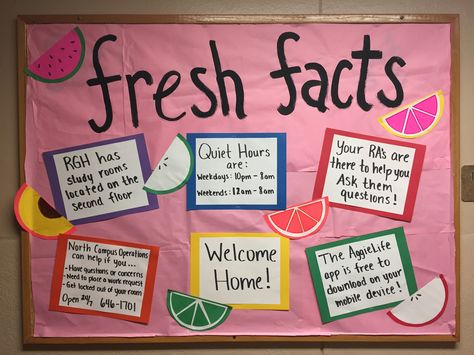 fresh facts
RGH has
study rooms
located on the
second floor
Quiet Hours
are:
Weekdays: 10pm - 8am
Weekends: 12am - 8am
Your RA's are
there to help you
Ask them
questions!
North Campus Operations
can help if you...
- Have questions or concerns
- Need to place a work request
- Get locked out of your room
Open 24/7 646-1701
Welcome
Home!
The AggieLife
app is free to
download on your
mobile device!